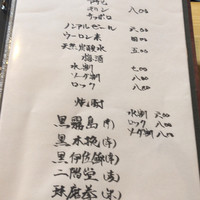 キリン 八〇〇
サッポロ
ノンアルビール 六〇〇
ウーロン茶 四〇〇
天然炭酸水 五〇〇
梅酒
水割 七〇〇
ソーダ割 八〇〇
ロック 八〇〇
焼酎
黒霧島(芋) 水割 六〇〇
黒木挽(芋) ロック 七〇〇
黒伊佐錦(芋) ソーダ割 八〇〇
二階堂(麦)
球磨拳(米)